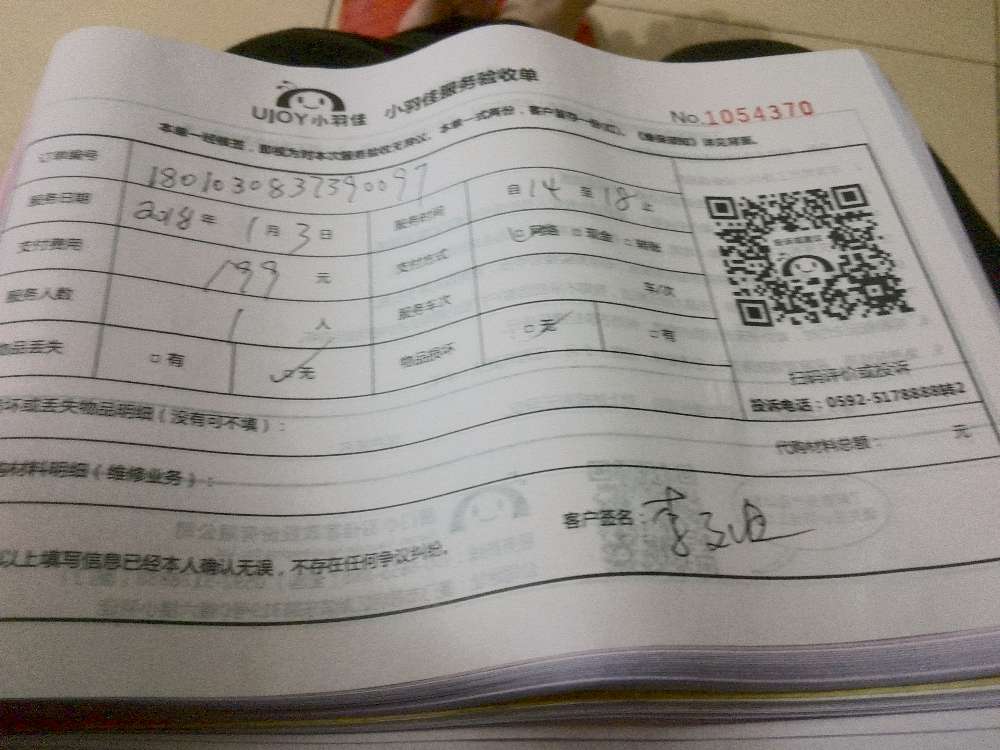 UJOY小羽佳 小羽佳服务验收单
No.1054370
本单一经签签，即视为对本次服务验收无异议。本单一式两份，客户留存一份。《 》详见背面。
订单编号 1801030837390097
服务日期 2018年1月3日 服务时间 自14至18止
支付费用 199元 支付方式 ☑网络 □现金 □转账
服务人数 1人 服务车次 车/次
物品丢失 □有 ☑无 物品损坏 ☑无 □有
扫码评价或投诉
投诉电话：0592-5178888转2
坏或丢失物品明细（没有可不填）：
代购材料总额： 元
材料明细（维修业务）：
客户签名：李
以上填写信息已经本人确认无误，不存在任何争议纠纷。